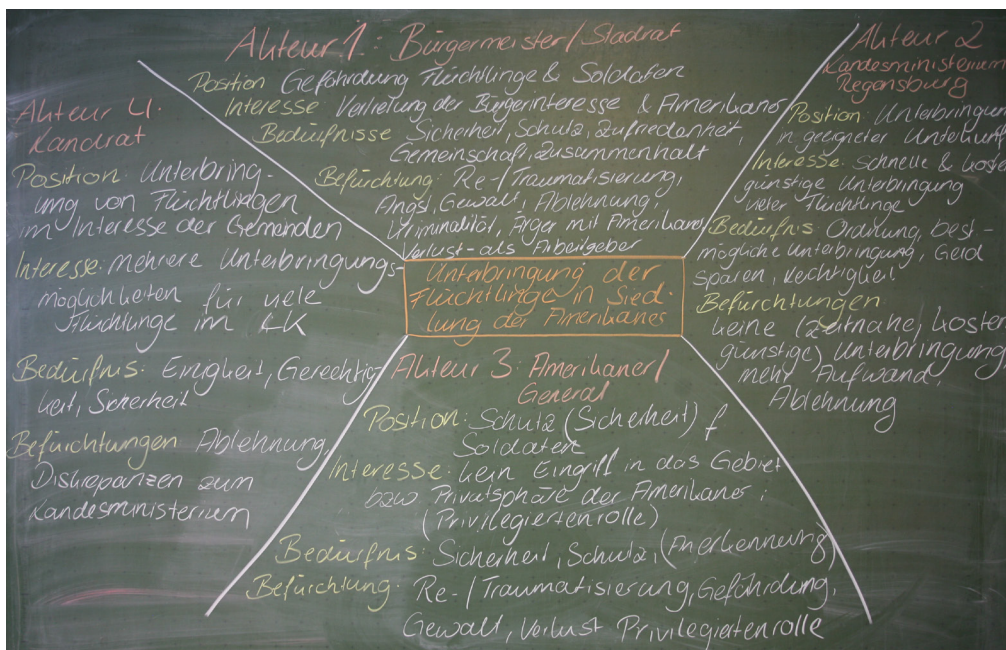 Akteur 1: Bürgermeister/Stadrat
Position Gefährdung Flüchtlinge & Soldaten
Interesse: Vertretung der Bürgerinteresse & Amerikaner
Bedürfnisse Sicherheit, Schutz, Zufriedenheit
Gemeinschaft, Zusammenhalt
Befürchtung: Re-/Traumatisierung,
Angst, Gewalt, Ablehnung,
Kriminalität, Ärger mit Amerikaner
Verlust - als Arbeitgeber
Akteur 2
Landesministerium
Regensburg
Position: Unterbringung
in geeigneter Umgebung
Interesse: schnelle & kosten
günstige Unterbringung
vieler Flüchtlinge
Bedürfnis: Ordnung, best-
mögliche Unterbringung, Geld
sparen,
Befürchtungen:
keine (zeitnahe, kosten
günstige) Unterbringung,
mehr Aufwand,
Ablehnung
Akteur 4:
Landrat
Position: Unterbring-
ung von Flüchtlingen
im Interesse der Gemeinden
Interesse: mehrere Unterbringungs-
möglichkeiten für viele
Flüchtlinge im LK
Bedürfnis: Einigkeit, Gerechtig
keit, Sicherheit
Befürchtungen Ablehnung,
Diskrepanzen zum
Landesministerium
Unterbringung der
Flüchtlinge in Sied-
lung der Amerikaner
Akteur 3: Amerikaner/
General
Position: Schutz (Sicherheit) f
Soldaten
Interesse: kein Eingriff in das Gebiet
bzw Privatsphäre der Amerikaner;
(Privilegiertenrolle)
Bedürfnis: Sicherheit, Schutz, (Anerkennung)
Befürchtung: Re-/Traumatisierung, Gefährdung,
Gewalt, Verlust Privilegiertenrolle